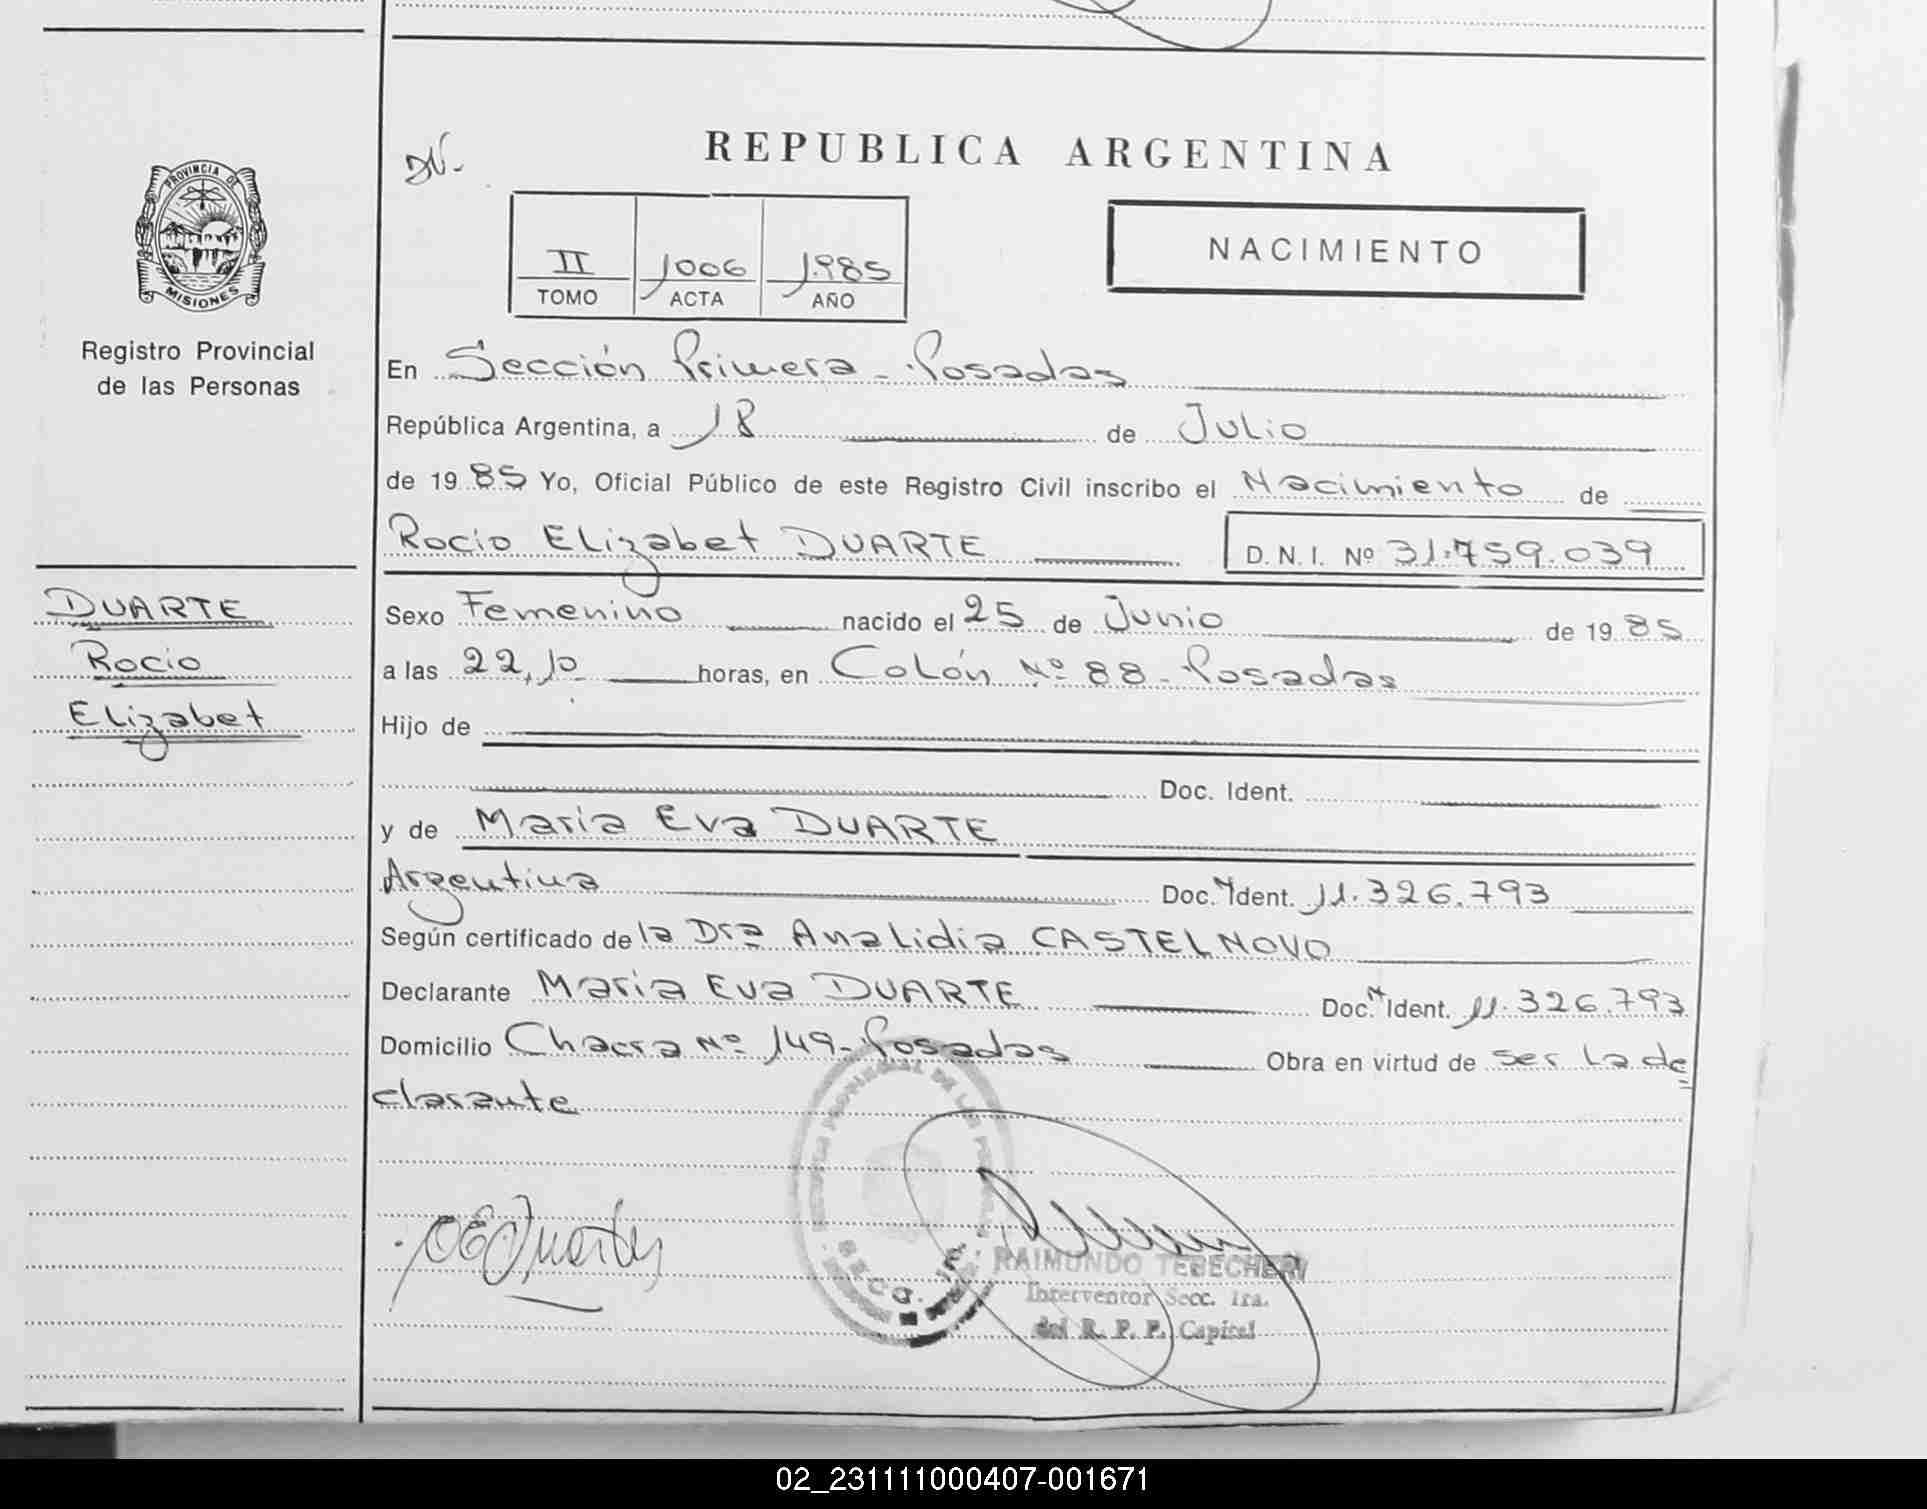 DN.
REPUBLICA ARGENTINA
PROVINCIA DE
MISIONES
Registro Provincial
de las Personas
II 1006 1.985
TOMO ACTA AÑO
NACIMIENTO
En Sección Primera - Posadas
República Argentina, a 18 de Julio
de 19 85 Yo, Oficial Público de este Registro Civil inscribo el Nacimiento de
Rocio Elizabet DUARTE D. N. I. Nº 31.759.039
DUARTE
Rocio
Elizabet
Sexo Femenino nacido el 25 de Junio de 19 85
a las 22,10 horas, en Colón Nº 88 - Posadas
Hijo de
Doc. Ident.
y de Maria Eva DUARTE
Argentina Doc. Ident. 11.326.793
Según certificado de la Dra Analidia CASTELNOVO
Declarante Maria Eva DUARTE Doc. Ident. 11.326.793
Domicilio Chacra Nº 149 - Posadas Obra en virtud de ser la de
clarante
RAIMUNDO TEBECHERI
Interventor Secc. 1ra.
del R. P. P. Capital
02_231111000407-001671